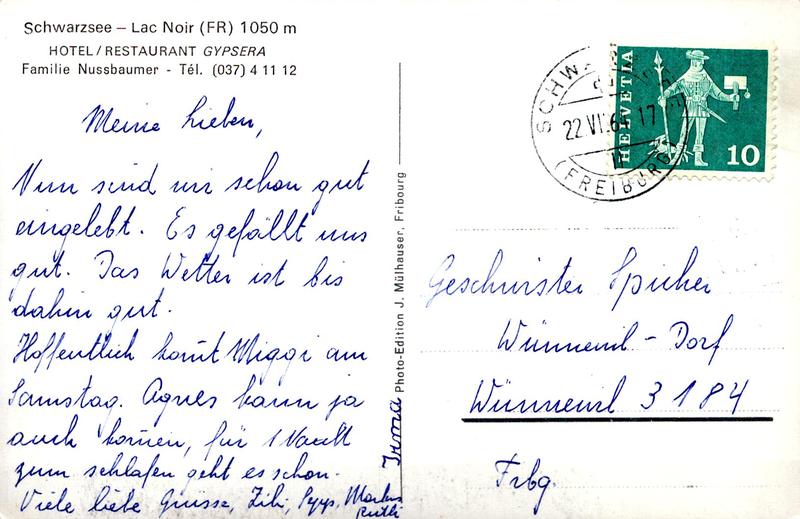 Schwarzsee – Lac Noir (FR) 1050 m
HOTEL/RESTAURANT GYPSERA
Familie Nussbaumer - Tél. (037) 4 11 12
Meine Lieben,
Nun sind wir schon gut
eingelebt. Es gefällt uns
gut. Das Wetter ist bis
dahin gut.
Hoffentlich komt Miggi am
Samstag. Agnes kann ja
auch komen, für 1 Nacht
zum schlafen geht es schon.
Viele liebe Grüsse, Markus
Ruthi
Irma
Photo-Edition J. Mülhauser, Fribourg
HELVETIA
10
22 VI 64 17
(FREIBURG)
Geschwister Spicher
Wünnewil-Dorf
Wünnewil 3184
Frbg.